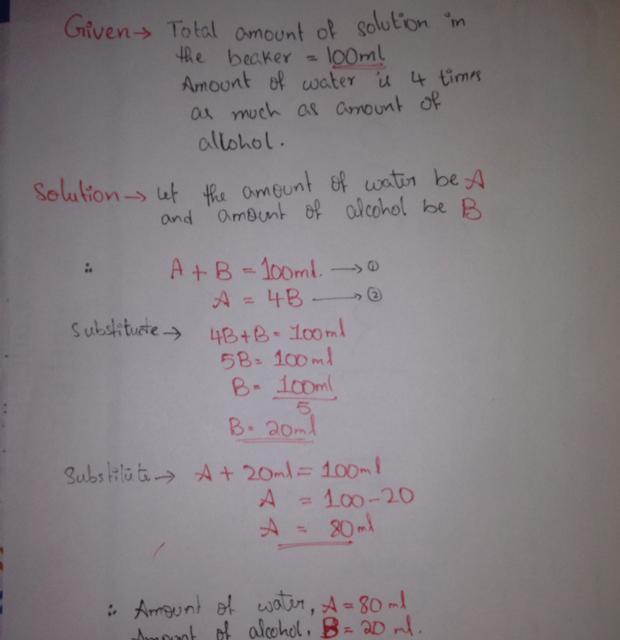 Given → Total amount of solution in
the beaker = 100ml
Amount of water is 4 times
as much as amount of
allohol.
Solution → Let the amount of water be A
and amount of alcohol be B
∴ A + B = 100ml. → ①
A = 4B → ②
Substitute → 4B+B = 100ml
5B = 100ml
B = 100ml
5
B = 20ml
Substitute → A + 20ml = 100ml
A = 100-20
A = 80ml
∴ Amount of water, A = 80 ml
Amount of alcohol, B = 20 ml.